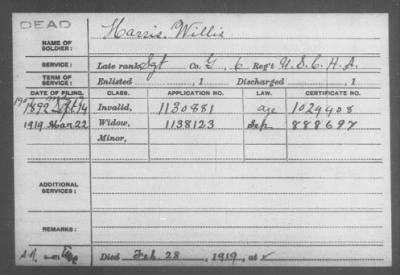 DEAD
Harris, Willis
NAME OF SOLDIER:
SERVICE: Late rank, Sgt Co. G, 6 Reg't U.S.C.H.A.
TERM OF SERVICE: Enlisted , 1 Discharged , 1
DATE OF FILING. CLASS. APPLICATION NO. LAW. CERTIFICATE NO.
1892 Sept 14 Invalid, 1130881 age 1029408
1919 Mar 22 Widow, 1138123 Sep 888697
Minor,
ADDITIONAL SERVICES:
REMARKS:
Died Feb 28, 1919, at